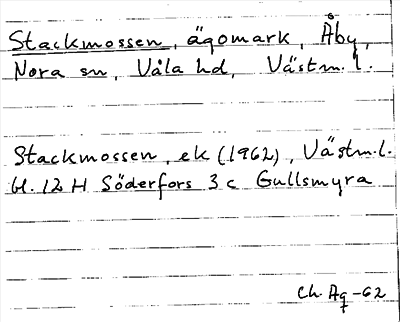 Stackmossen, ägomark, Åby,
Nora sn, Våla hd, Västm. l.
Stackmossen, ek (1962), Västm.l.
bl. 12 H Söderfors 3 c Gullsmyra
Ch. Aq -62